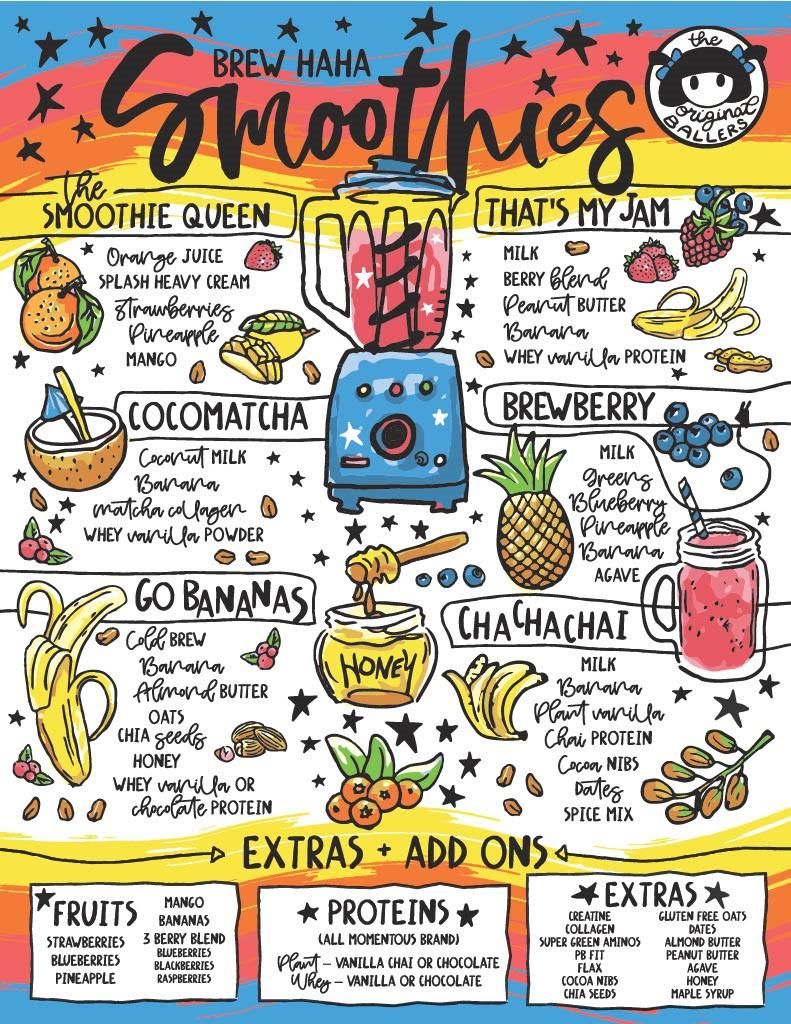 BREW HAHA
Smoothies
the
original
BALLERS
the
SMOOTHIE QUEEN
Orange JUICE
SPLASH HEAVY CREAM
Strawberries
Pineapple
MANGO
THAT'S MY JAM
MILK
BERRY blend
Peanut BUTTER
Banana
WHEY vanilla PROTEIN
COCOMATCHA
Coconut MILK
Banana
matcha collagen
WHEY vanilla POWDER
BREWBERRY
MILK
Greens
Blueberry
Pineapple
Banana
AGAVE
GO BANANAS
Cold BREW
Banana
Almond BUTTER
OATS
CHIA seeds
HONEY
WHEY vanilla OR
chocolate PROTEIN
HONEY
CHACHACHAI
MILK
Banana
Plant vanilla
Chai PROTEIN
Cocoa NIBS
Dates
SPICE MIX
EXTRAS + ADD ONS
FRUITS
STRAWBERRIES
BLUEBERRIES
PINEAPPLE
MANGO
BANANAS
3 BERRY BLEND
BLUEBERRIES
BLACKBERRIES
RASPBERRIES
PROTEINS
(ALL MOMENTOUS BRAND)
Plant – VANILLA CHAI OR CHOCOLATE
Whey – VANILLA OR CHOCOLATE
EXTRAS
CREATINE
COLLAGEN
SUPER GREEN AMINOS
PB FIT
FLAX
COCOA NIBS
CHIA SEEDS
GLUTEN FREE OATS
DATES
ALMOND BUTTER
PEANUT BUTTER
AGAVE
HONEY
MAPLE SYRUP